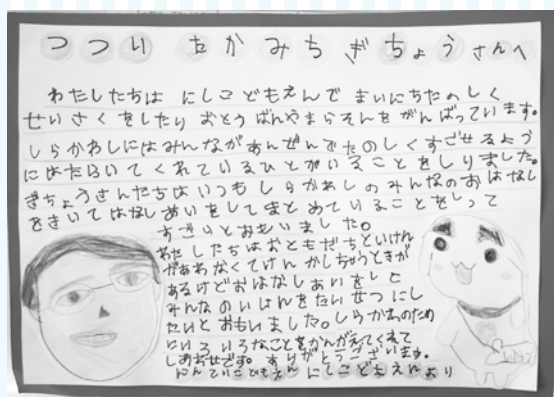 つつい たかみちぎちょうさんへ
わたしたちは にしこどもえんで まいにちたのしく
せいさくをしたり おとうばんやまらそんをがんばっています。
しらかわしにはみんながあんぜんでたのしくすごせるよう
にはたらいてくれているひとがいることをしりました。
ぎちょうさんたちはいつもしらかわしのみんなのおはなし
をきいてはなしあいをしてまとめていることをしって
すごいとおもいました。
わたしたちはおともだちといけん
があわなくてけんかしちゃうときが
あるけどおはなしあいをして
みんなのいけんをたいせつにし
たいとおもいました。しらかわのため
にいろいろなことをかんがえてくれて
しあわせです。ありがとうございます。
にんていこどもえん にしこどもえんより